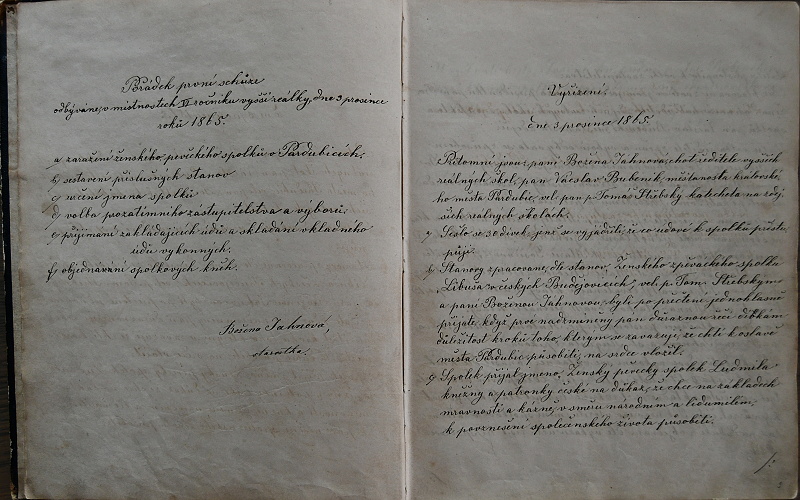 Pořádek první schůze
odbýváné, v místnostech IV ročníku vyšší reálky, dne 3 prosince
roku 1865.
a zaražení ženského pěveckého spolku v Pardubicích.
b) sestavení příslušných stanov
c) určení jmena spolku
d) volba prozatímního zástupitelstva a výboru.
e) přijímání zakládajících údů a skládání vkladného
údů vykonných.
f) objednávání spolkových kněh.
Božena Jahnová,
starostka.
Vyřízení.
dne 3 prosince 1865.
Přitomní jsou, paní Božena Jahnová, choť ředitele vyšších
reálných škol, pan Václav Bubeník, místanosta královské-
ho města Pardubic, vel. pan p. Tomáš Střebský katecheta na zdej-
ších reálných školách.
a) Sešlo se 30 dívek, jenž se vyjádřili, že co údové k spolku přistu-
pují.
b) Stanovy zpracované, dle stanov, Ženského zpěváckého spolku
Libuša v českých Budějovicích, vel. p. Tom. Střebským
a paní Boženou Jahnovou, byli po přečtení jednohlasně
přijaté, když prvé nadzmíněný pan důraznou řečí dívkám
důležitost kroku toho, kterým se zavazují, že chtí k oslavě
města Pardubic působiti, na srdce vložil.
c) Spolek přijal jmeno, Ženský pěvecký spolek Ludmila
kněžny a patronky české na důkaz, že chce na základech
mravnosti a kázně, v směru národním a lidumilém,
k povznešení společenského života působiti.